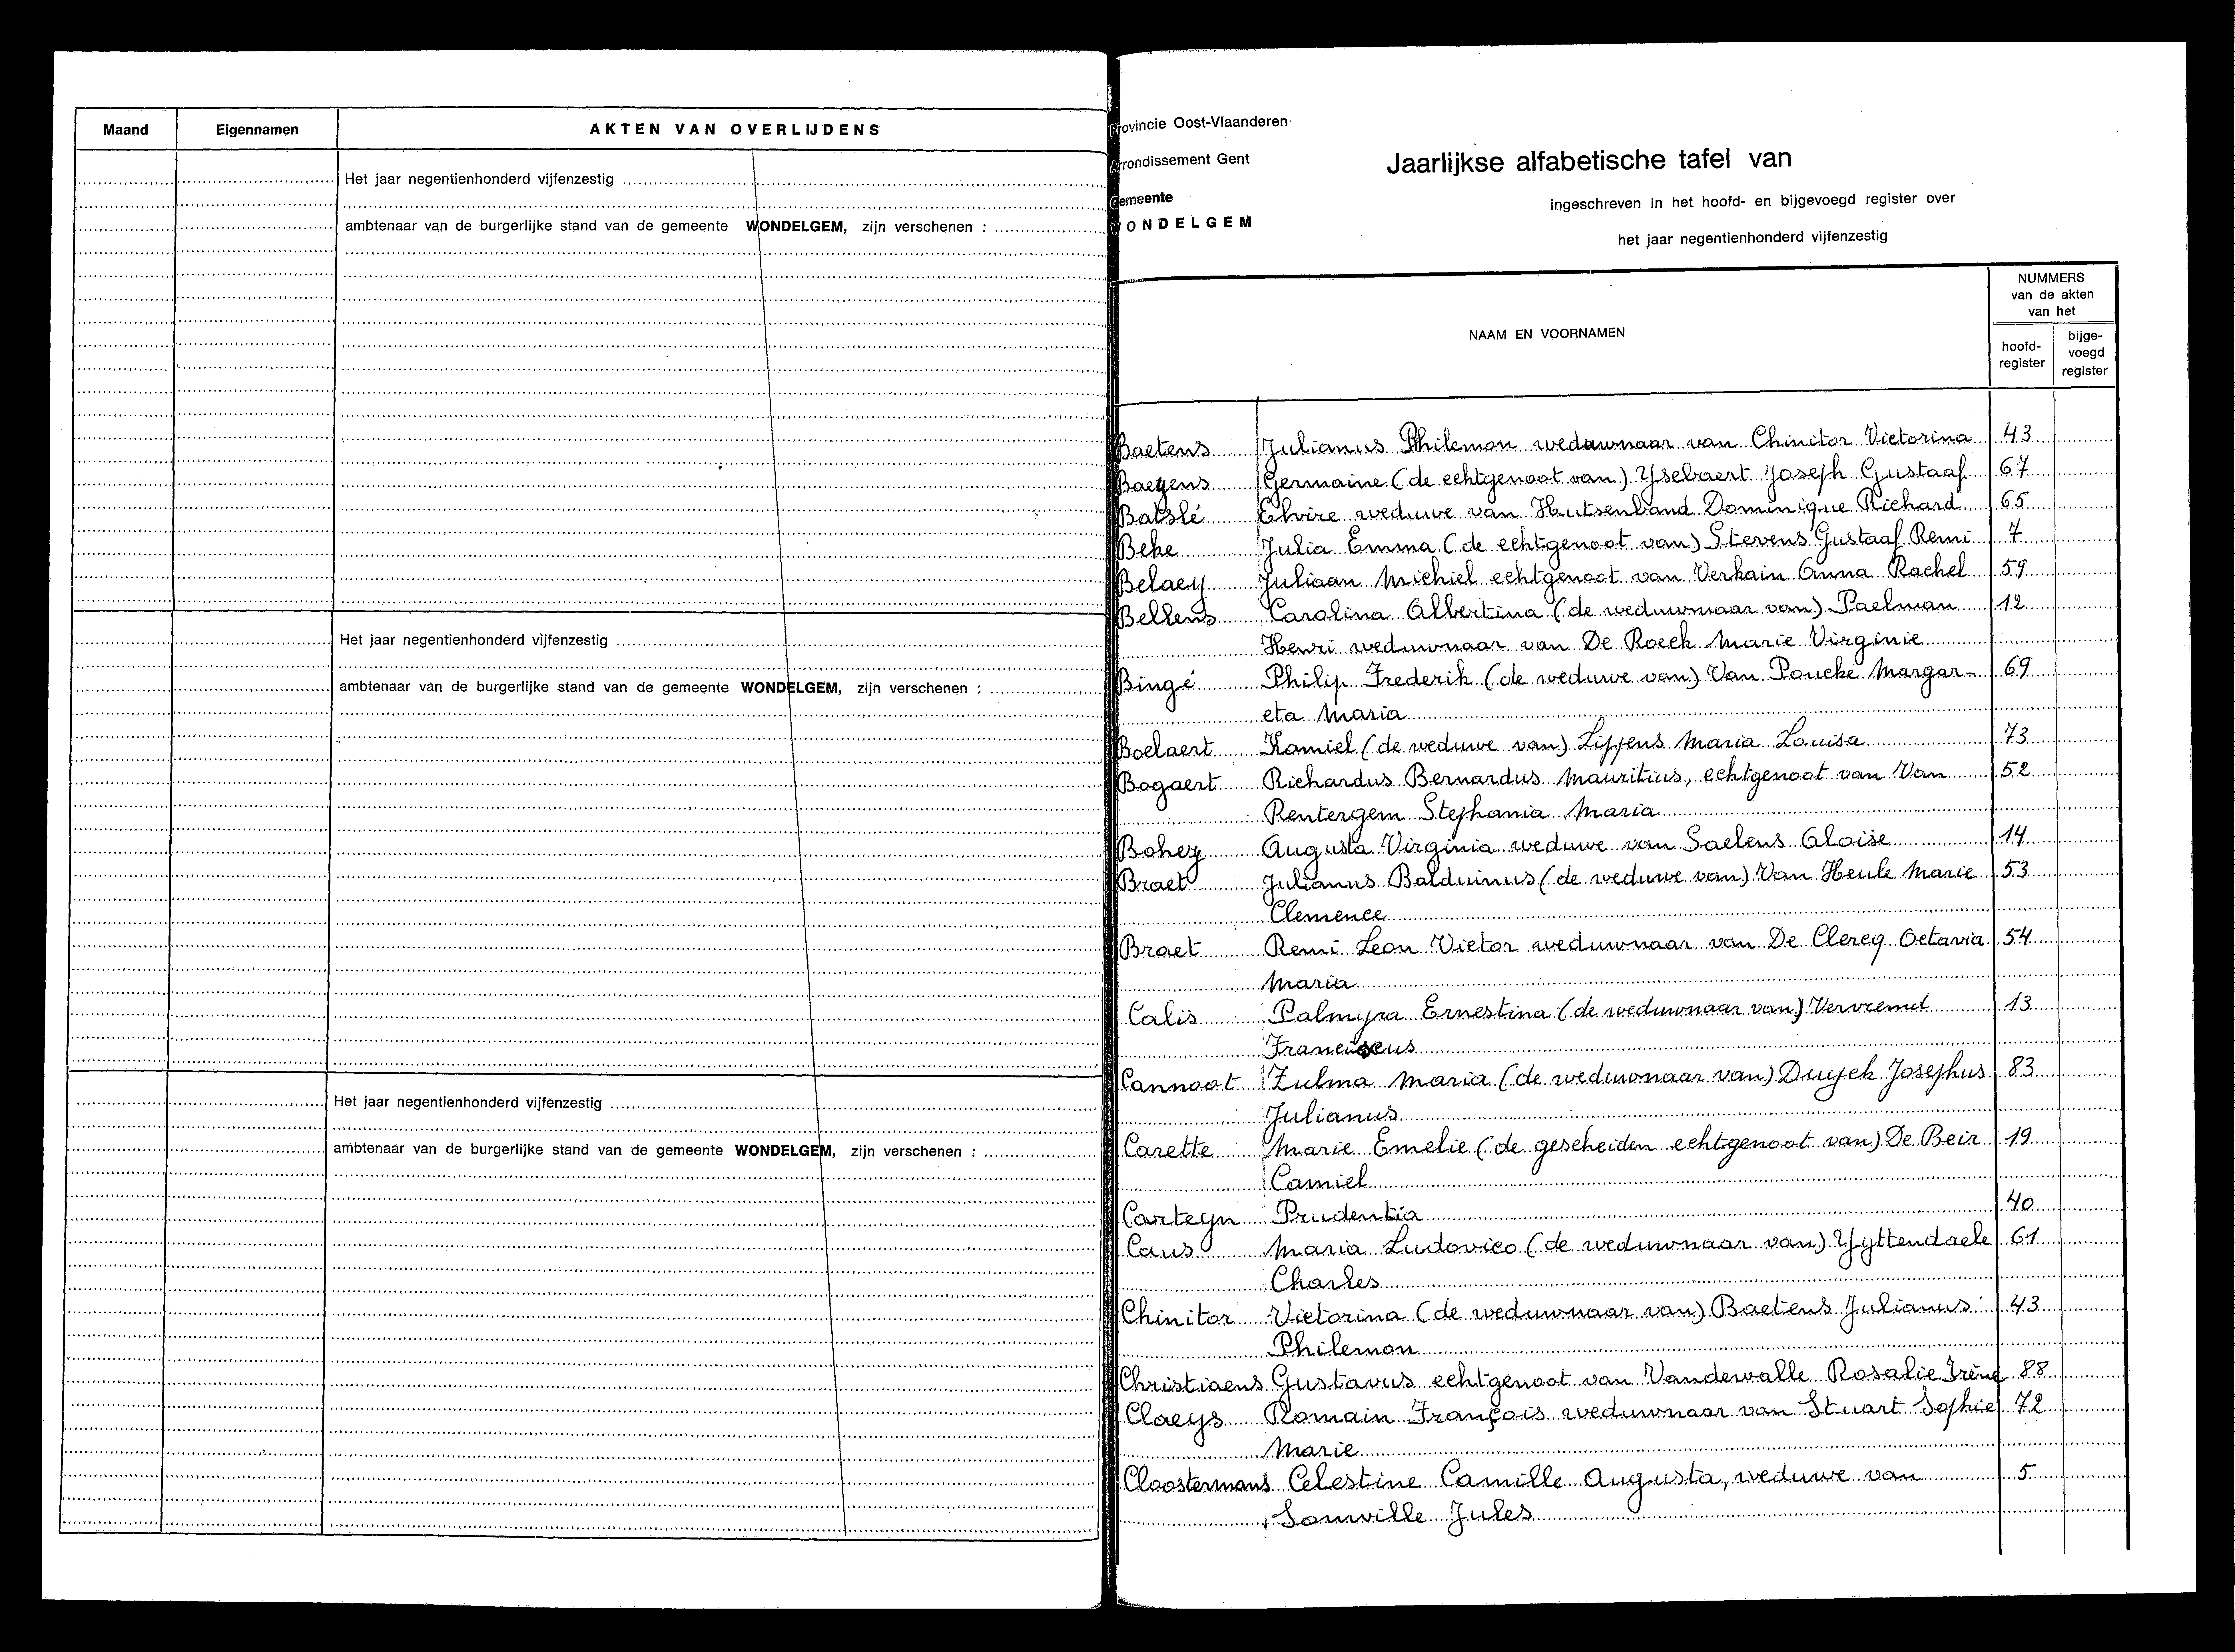 Maand Eigennamen AKTEN VAN OVERLIJDENS
Het jaar negentienhonderd vijfenzestig
ambtenaar van de burgerlijke stand van de gemeente WONDELGEM, zijn verschenen :
Het jaar negentienhonderd vijfenzestig
ambtenaar van de burgerlijke stand van de gemeente WONDELGEM, zijn verschenen :
Het jaar negentienhonderd vijfenzestig
ambtenaar van de burgerlijke stand van de gemeente WONDELGEM, zijn verschenen :
Provincie Oost-Vlaanderen
Arrondissement Gent
Gemeente
WONDELGEM
Jaarlijkse alfabetische tafel van
ingeschreven in het hoofd- en bijgevoegd register over
het jaar negentienhonderd vijfenzestig
NAAM EN VOORNAMEN
NUMMERS
van de akten
van het
hoofd-
register
bijge-
voegd
register
Baetens Julianus Philemon weduwnaar van Chinitor Victorina 43
Baeyens Germaine (de echtgenoot van) Ysebaert Joseph Gustaaf 67
Batslé Elvire weduwe van Hutsenband Dominique Richard 65
Beke Julia Emma (de echtgenoot van) Stevens Gustaaf Remi 7
Belaey Juliaan Michiel echtgenoot van Verhain Anna Rachel 59
Bellens Carolina Albertina (de weduwnaar van) Paelman 12
Henri weduwnaar van De Roeck Marie Virginie
Bingé Philip Frederik (de weduwe van) Van Poucke Margar- 69
eta Maria
Boelaert Kamiel (de weduwe van) Lippens Maria Louisa 73
Bogaert Richardus Bernardus Mauritius, echtgenoot van Van 52
Rentergem Stephania Maria
Bohez Augusta Virginia weduwe van Saelens Aloïse 14
Braet Julianus Balduinus (de weduwe van) Van Heule Marie 53
Clemence
Braet Remi Leon Victor weduwnaar van De Clercq Octavia 54
Maria
Calis Palmyra Ernestina (de weduwnaar van) Vervremd 13
Franciscus
Cannoot Zulma Maria (de weduwnaar van) Duyck Josephus 83
Julianus
Carette Marie Emelie (de gescheiden echtgenoot van) De Beir 19
Camiel
Carteyn Prudentia 40
Caus Maria Ludovico (de weduwnaar van) Yyttendaele 61
Charles
Chinitor Victorina (de weduwnaar van) Baetens Julianus 43
Philemon
Christiaens Gustavus echtgenoot van Vandewalle Rosalie Irène 88
Claeys Romain François weduwnaar van Stuart Sophie 72
Marie
Cloostermans Celestine Camille Augusta, weduwe van 5
Sonville Jules